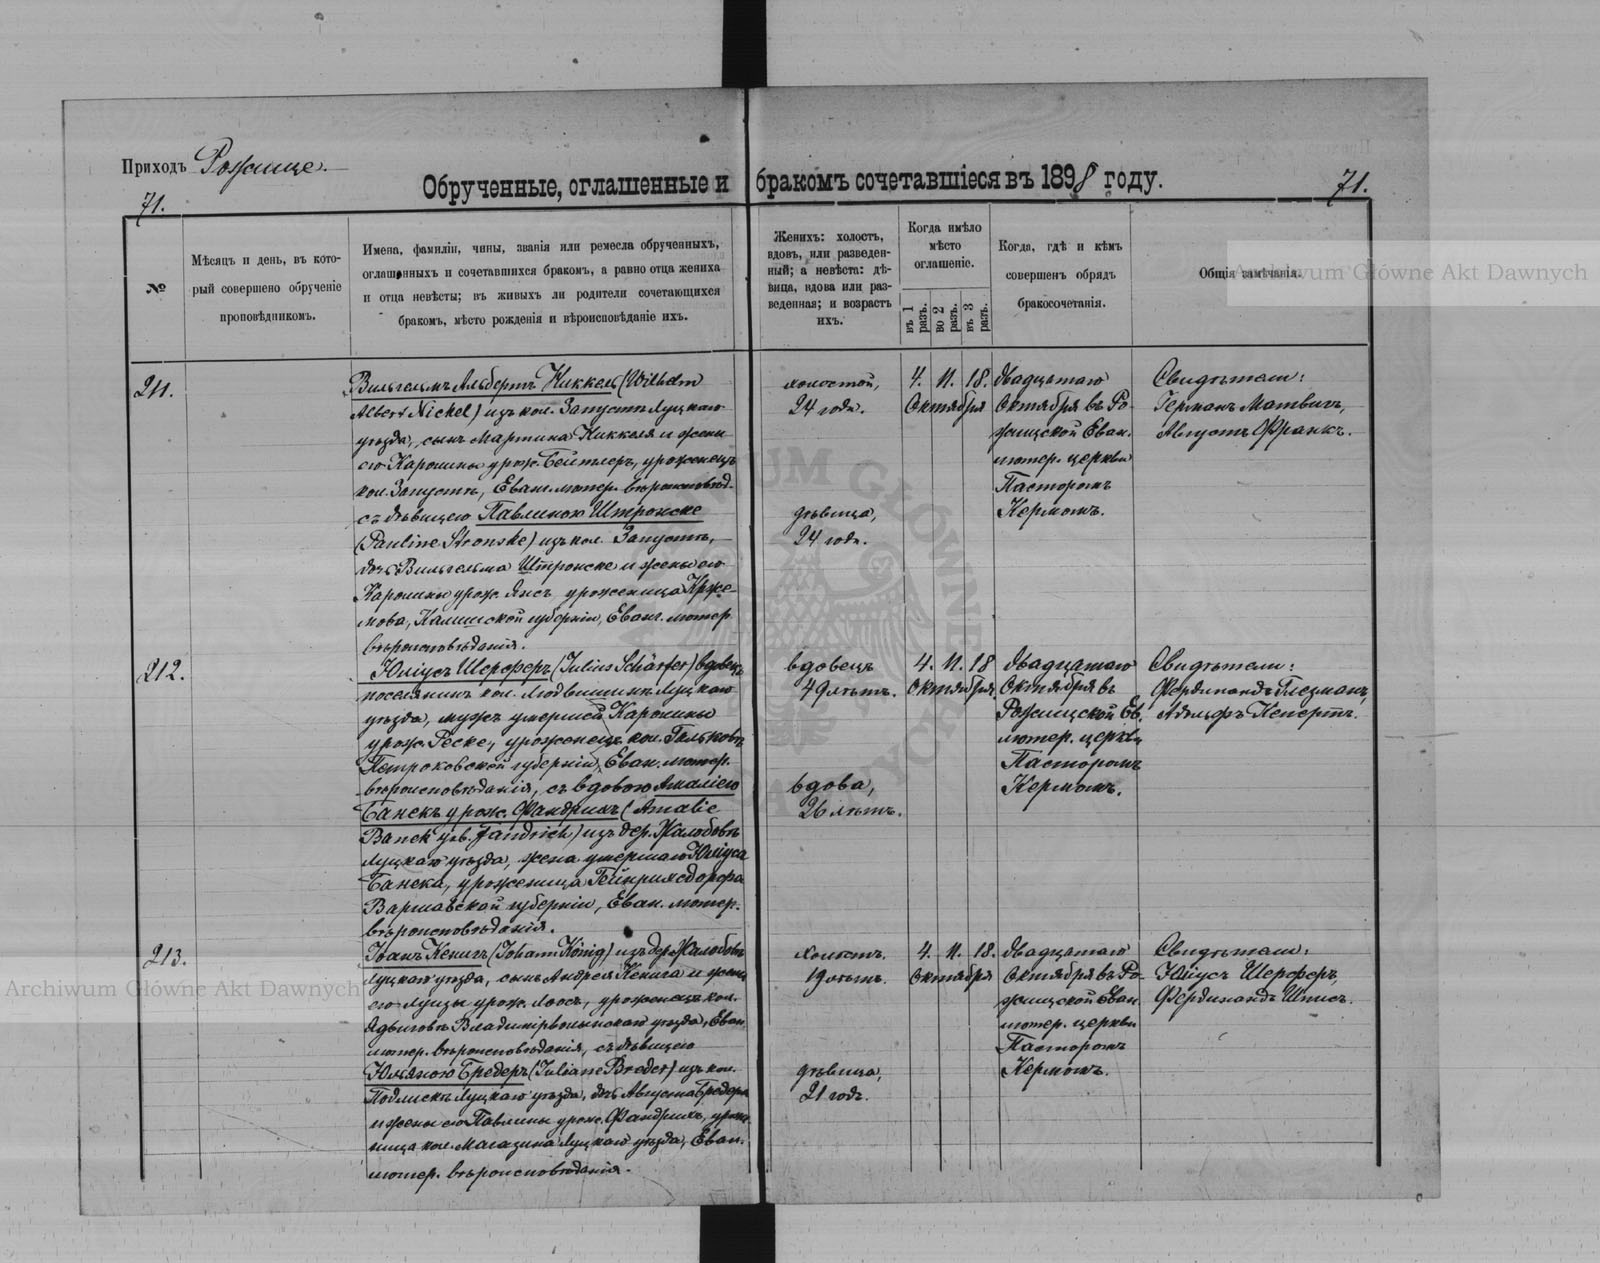 Приходъ Рожище.
71.
Обрученные, оглашенные и бракомъ сочетавшіеся въ 1898 году.
71.
№
Мѣсяцъ и день, въ кото-
рый совершено обрученіе
проповѣдникомъ.
Имена, фамиліи, чины, званія или ремесла обрученныхъ,
оглашенныхъ и сочетавшихся бракомъ, а равно отца жениха
и отца невѣсты; въ живыхъ ли родители сочетающихся
бракомъ, мѣсто рожденія и вѣроисповѣданіе ихъ.
Женихъ: холостъ,
вдовъ, или разведен-
ный; а невѣста: дѣ-
вица, вдова или раз-
веденная; и возрастъ
ихъ.
Когда имѣло
мѣсто
оглашеніе.
въ 1 разъ.
во 2 разъ.
въ 3 разъ.
Когда, гдѣ и кѣмъ
совершенъ обрядъ
бракосочетанія.
Общія замѣчанія.
Archiwum Główne Akt Dawnych
211.
Вильгельмъ Альбертъ Никкель (Wilhelm
Albert Nickel) изъ кол. Запустъ Луцкаго
уѣзда, сынъ Мартина Никкеля и жены
его Каролины урож. Бейтлеръ, уроженецъ
кол. Запустъ, Еванг. лютер. вѣроисповѣд.
съ дѣвицею Павлиною Штронске
(Pauline Stronske) изъ кол. Запустъ,
дочь Вильгельма Штронске и жены его
Каролины урож. Янсъ, уроженица
Калишской губерніи, Еванг. лютер.
вѣроисповѣданія.
холостой,
24 годъ.
дѣвица,
24 годъ.
4. 11. 18.
Октября
двадцатаго
Октября въ Ро-
жищской Еван.
лютер. церкви
Пасторомъ
Кермомъ.
Свидѣтели:
Германъ Матвигъ,
Августъ Франкъ.
212.
Юліусъ Шерферъ (Julius Schärfer) вдовецъ
поселянинъ кол. Людвишинъ Луцкаго
уѣзда, мужъ умершей Каролины
урож. Геске, уроженецъ кол. Гальковъ
Петроковской губерніи, Еван. лютер.
вѣроисповѣданія, съ вдовою Амаліею
Банекъ урож. Фандрихъ (Amalie
Banek geb. Fandrich) изъ дер. Жалобовъ
Луцкаго уѣзда, жена умершаго Юліуса
Банека, уроженица Гейнрихсдорфа
Варшавской губерніи, Еван. лютер.
вѣроисповѣданія.
вдовецъ
49 лѣтъ.
вдова,
26 лѣтъ.
4. 11. 18
Октября
двадцатаго
Октября въ
Рожищской Ев.
лютер. церкви
Пасторомъ
Кермомъ.
Свидѣтели:
Фердинандъ Глезманъ,
Адольфъ Кепертъ.
213.
Іванъ Кенигъ (Johann König) изъ дер. Жалобовъ
Луцкаго уѣзда, сынъ Андрея Кенига и жены
его Луизы урож. Лоосъ, уроженецъ кол.
Ядвиговъ Владимірволынскаго уѣзда, Еван.
лютер. вѣроисповѣданія, съ дѣвицею
Юліяною Бредеръ (Juliane Breder) изъ кол.
Подлискъ Луцкаго уѣзда, дочь Августа Бредера
и жены его Павлины урож. Фандрихъ, уроже-
ница кол. Магазина Луцкаго уѣзда, Еван.
лютер. вѣроисповѣданія.
холостъ.
19 лѣтъ.
дѣвица,
21 годъ.
4. 11. 18.
Октября
двадцатаго
Октября въ Ро-
жищской Еван.
лютер. церкви
Пасторомъ
Кермомъ.
Свидѣтели:
Юліусъ Шерферъ,
Фердинандъ Шписъ.
Archiwum Główne Akt Dawnych